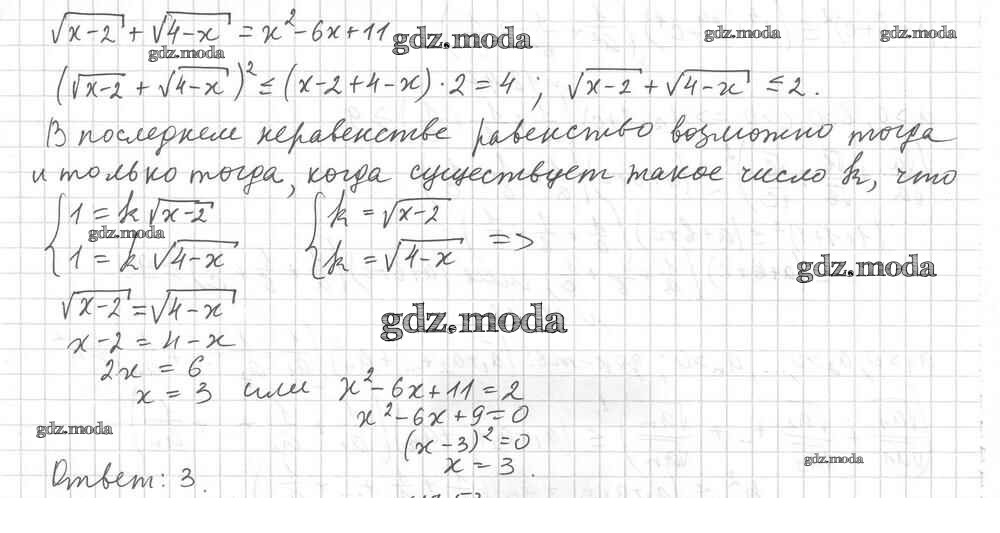 √x-2 + √4-x = x² - 6x + 11 gdz.moda gdz.moda gdz.moda
gdz.moda
(√x-2 + √4-x)² ≤ (x-2+4-x)·2 = 4 ; √x-2 + √4-x ≤ 2.
В последнем неравенстве равенство возможно тогда
и только тогда, когда существует такое число k, что
{ 1 = k √x-2 { k = √x-2
gdz.moda =>
1 = k √4-x k = √4-x
gdz.moda
√x-2 = √4-x
gdz.moda
x-2 = 4-x
2x = 6
x = 3 или x² - 6x + 11 = 2
x² - 6x + 9 = 0
gdz.moda
(x-3)² = 0
x = 3.
gdz.moda
Ответ: 3.